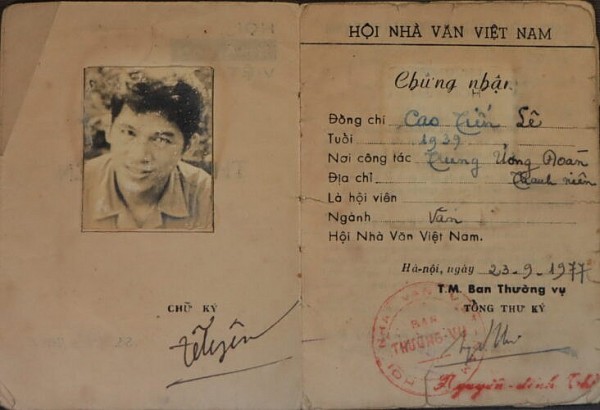 CHỮ KÝ
HỘI NHÀ VĂN VIỆT NAM
Chứng nhận
Đồng chí Cao Tiến Lê
Tuổi 1939
Nơi công tác Trung Ương Đoàn
Địa chỉ Thanh niên
Là hội viên
Ngành Văn
Hội Nhà Văn Việt Nam.
Hà-nội, ngày 23-9-1977
T.M. Ban Thường vụ
TỔNG THƯ KÝ
BAN
THƯỜNG-VỤ
HỘI NHÀ VĂN
Nguyễn-đình Thi